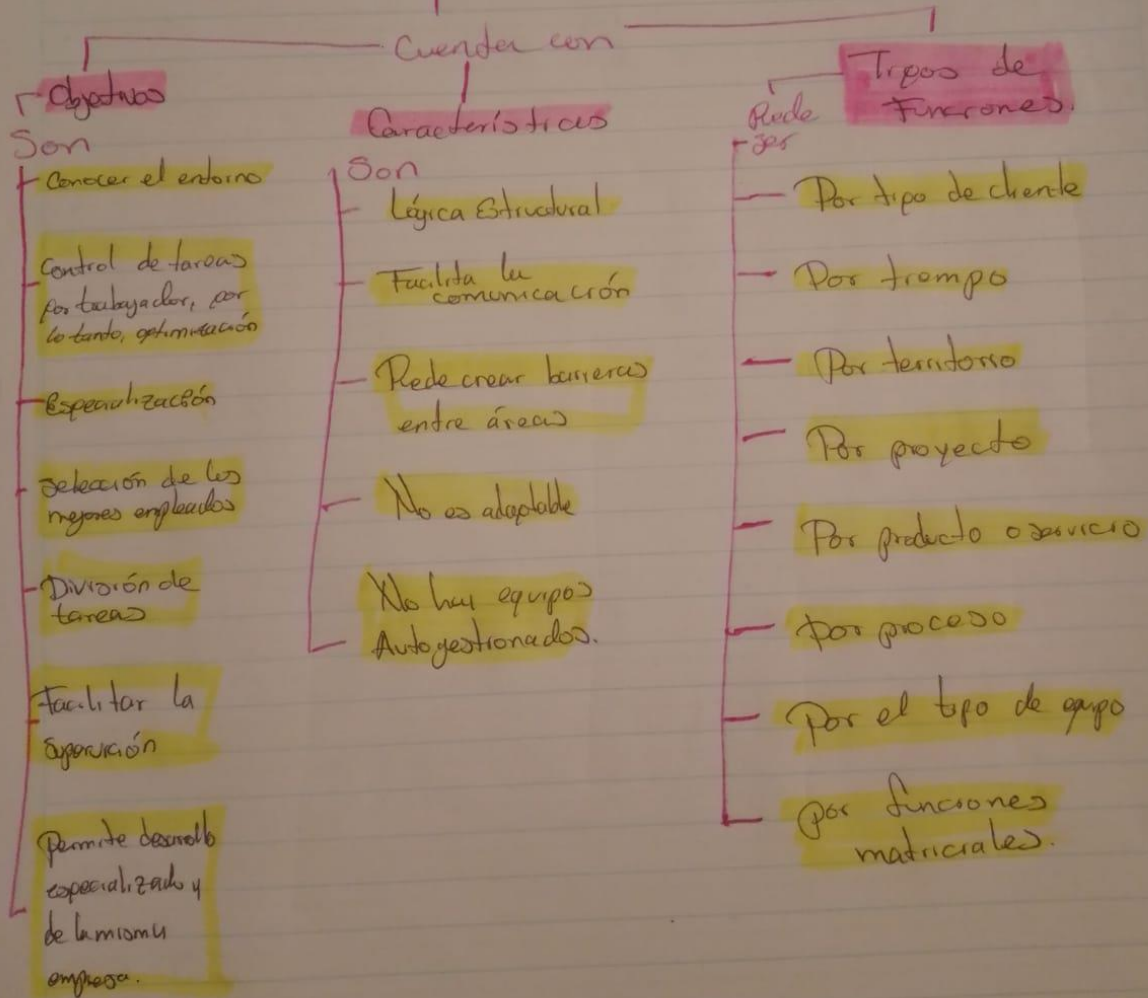 Cuenta con
Objetivos
Son
Conocer el entorno
Control de tareas
por trabajador, por
lo tanto, optimización
Especialización
Selección de los
mejores empleados
División de
tareas
Facilitar la
Supervisión
Permite desarrollo
especializado y
de la misma
empresa.
Características
Son
Lógica Estructural
Facilita la
comunicación
Puede crear barreras
entre áreas
No es adaptable
No hay equipos
Autogestionados.
Tipos de
Funciones.
Puede
ser
Por tipo de cliente
Por tiempo
Por territorio
Por proyecto
Por producto o servicio
Por proceso
Por el tipo de equipo
por funciones
matriciales.